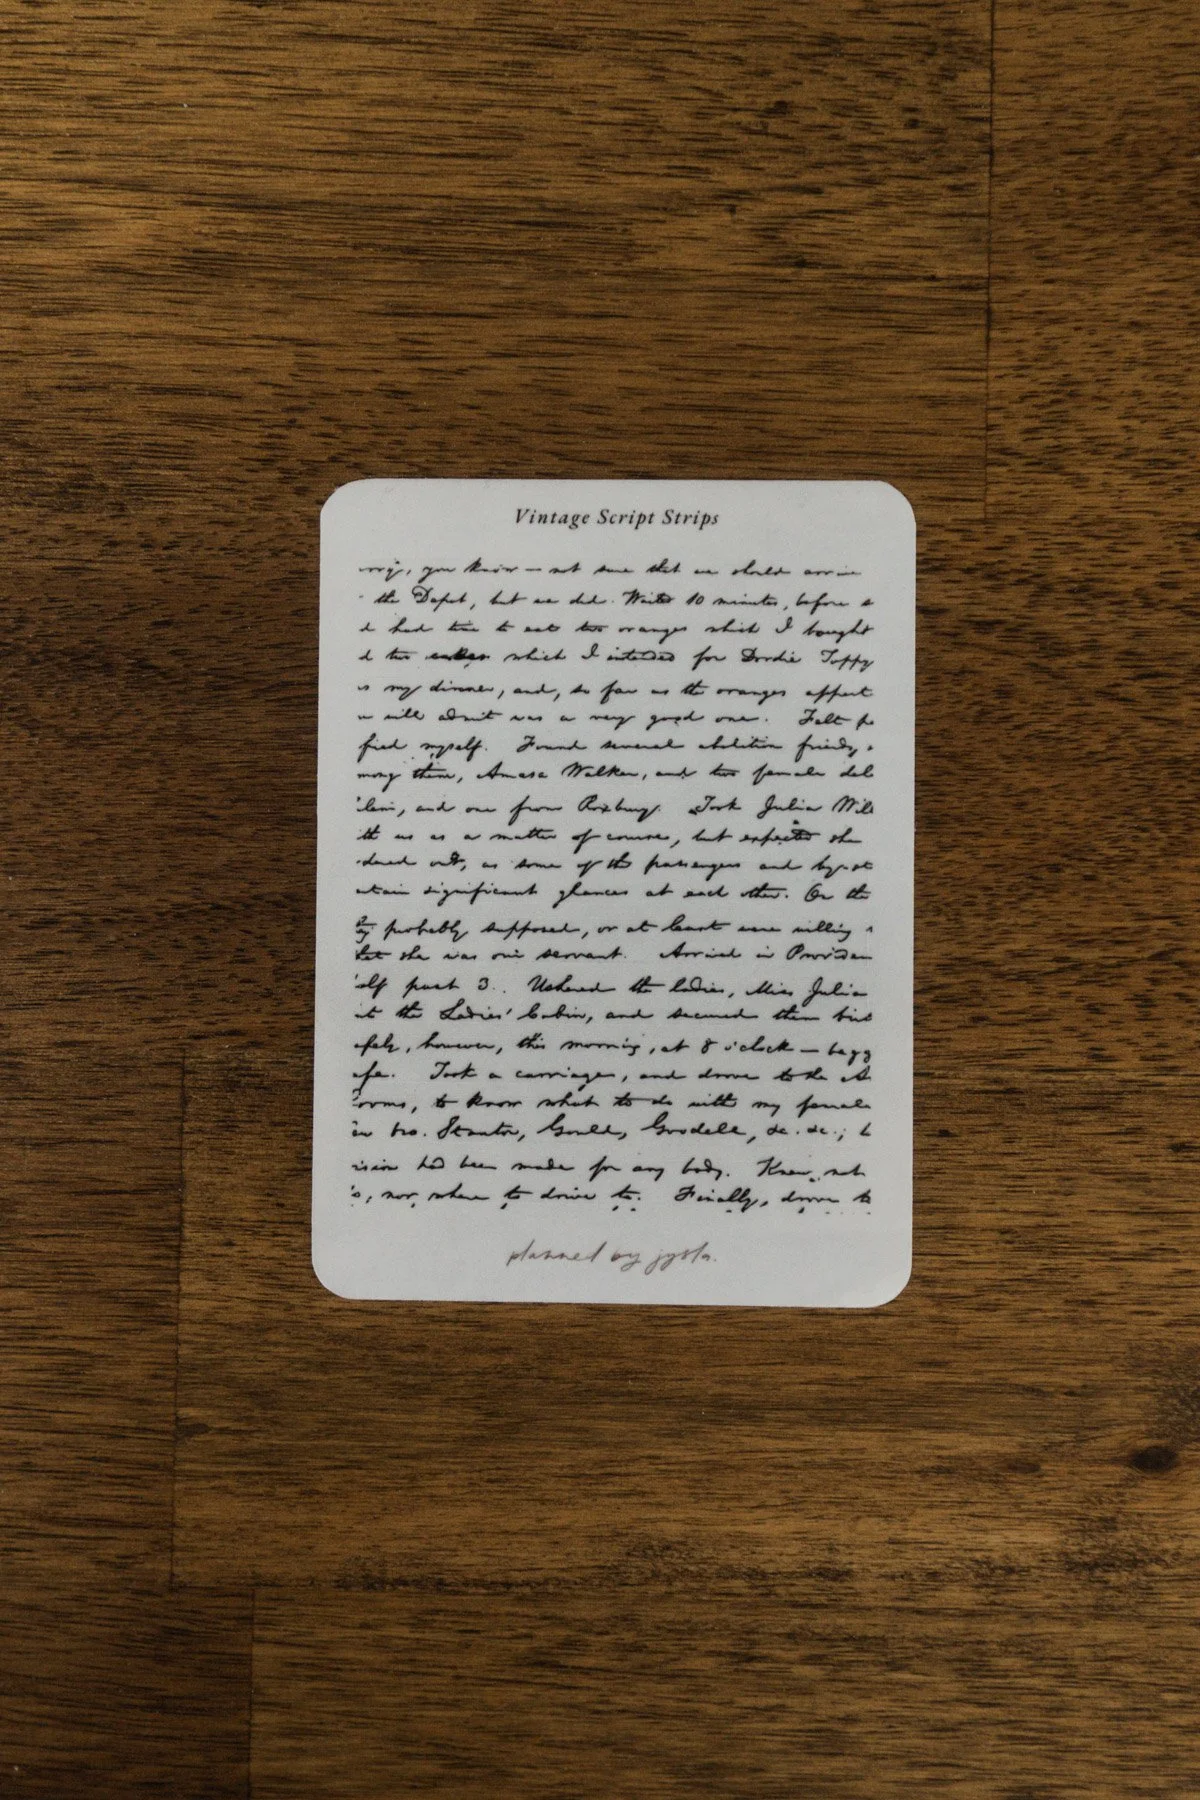 Vintage Script Strips
you know — not sure that we should arrive
the Depot, but we did. Waited 10 minutes, before
d had time to eat two oranges which I bought
d two cakes which I intended for Dordie Toppy
my dinner, and, so far as the oranges affect
will admit was a very good one. Felt
fied myself. Found several abolition friends,
mong them, Amasa Walker, and two female del
and one from Roxbury. Took Julia Wil
ith us as a matter of course, but expected she
out, as some of the passengers and
rtain significant glances at each other. On the
probably supposed, or at least were willing
that she was our servant. Arrived in Providen
alf past 3. Ushered the ladies, Miss Julia
the Ladies' Cabin, and secured them
afely, however, this morning, at 8 o'clock — bagg
afe. Took a carriage, and drove to the A
ooms, to know what to do with my female
bro. Stanton, Gould, Goodell, &c. &c.;
ision had been made for any body. Knew not
nor where to drive to. Finally, drove to
planned by jysla.